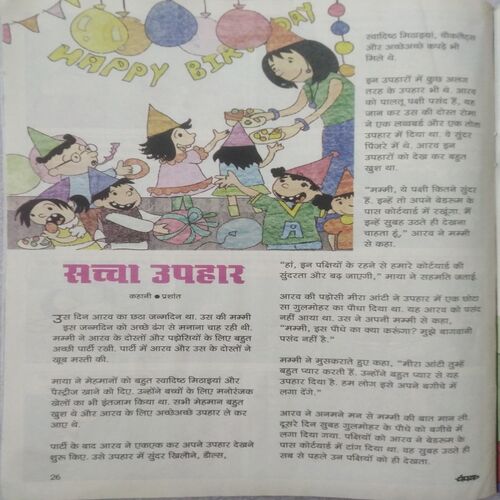 HAPPY BIRTHDAY
A
सच्चा उपहार
कहानी ● प्रशांत
उस दिन आरव का छठा जन्मदिन था. उस की मम्मी
इस जन्मदिन को अच्छे ढंग से मनाना चाह रही थी.
मम्मी ने आरव के दोस्तों और पड़ोसियों के लिए बहुत
अच्छी पार्टी रखी. पार्टी में आरव और उस के दोस्तों ने
खूब मस्ती की.
माया ने मेहमानों को बहुत स्वादिष्ठ मिठाइयां और
पैस्ट्रीज खाने को दिए. उन्होंने बच्चों के लिए मनोरंजक
खेलों का भी इंतजाम किया था. सभी मेहमान बहुत
खुश थे और आरव के लिए अच्छेअच्छे उपहार ले कर
आए थे.
पार्टी के बाद आरव ने एकएक कर अपने उपहार देखने
शुरू किए. उसे उपहार में सुंदर खिलौने, डौल्स,
स्वादिष्ठ मिठाइयां, चौकलेट्स
और अच्छेअच्छे कपड़े भी
मिले थे.
इन उपहारों में कुछ अलग
तरह के उपहार भी थे. आरव
को पालतू पक्षी पसंद हैं, यह
जान कर उस की दोस्त रोमा
ने एक लवबर्ड और एक तोता
उपहार में दिया था. वे सुंदर
पिंजरे में थे. आरव इन
उपहारों को देख कर बहुत
खुश था.
"मम्मी, ये पक्षी कितने सुंदर
हैं. इन्हें तो अपने बेडरूम के
पास कोर्टयार्ड में रखूंगा. मैं
इन्हें सुबह उठते ही देखना
चाहता हूं," आरव ने मम्मी
से कहा.
"हां, इन पक्षियों के रहने से हमारे कोर्टयार्ड की
सुंदरता और बढ़ जाएगी," माया ने सहमति जताई.
आरव की पड़ोसी मीरा आंटी ने उपहार में एक छोटा
सा गुलमोहर का पौधा दिया था. यह आरव को पसंद
नहीं आया था. उस ने अपनी मम्मी से कहा,
"मम्मी, इस पौधे का क्या करूंगा? मुझे बागवानी
पसंद नहीं है."
मम्मी ने मुसकराते हुए कहा, "मीरा आंटी तुम्हें
बहुत प्यार करती हैं. उन्होंने बहुत प्यार से यह
उपहार दिया है. हम लोग इसे अपने बगीचे में
लगा देंगे."
आरव ने अनमने मन से मम्मी की बात मान ली.
दूसरे दिन सुबह गुलमोहर के पौधे को बगीचे में
लगा दिया गया. पक्षियों को आरव ने बेडरूम के
पास कोर्टयार्ड में टांग दिया था. वह सुबह उठते ही
सब से पहले उन पक्षियों को ही देखता.
26
चंपक